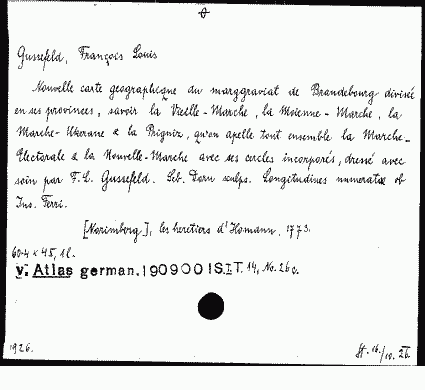 Gussefeld, François Louis
Nouvelle carte geographique du marggraviat de Brandebourg divisée
en ses provinces, savoir la Vieille-Marche, la Moienne-Marche, la
Marche-Ukerane & la Prigniz, qu'on apelle tout ensemble la Marche-
Electorale & la Nouvelle-Marche avec ses cercles incorporés, dressé avec
soin par F. L. Gussefeld. Seb. Dorn sculps. Longitudines numeratæ ab
Ins. Ferri.
[Norimberg], les heretiers d'Homann. 1773.
60.4 x 45, 1 l.
v. Atlas german. 190900 IS. I T. 14, No. 26 c.
1926.
St. 16/10. 26.